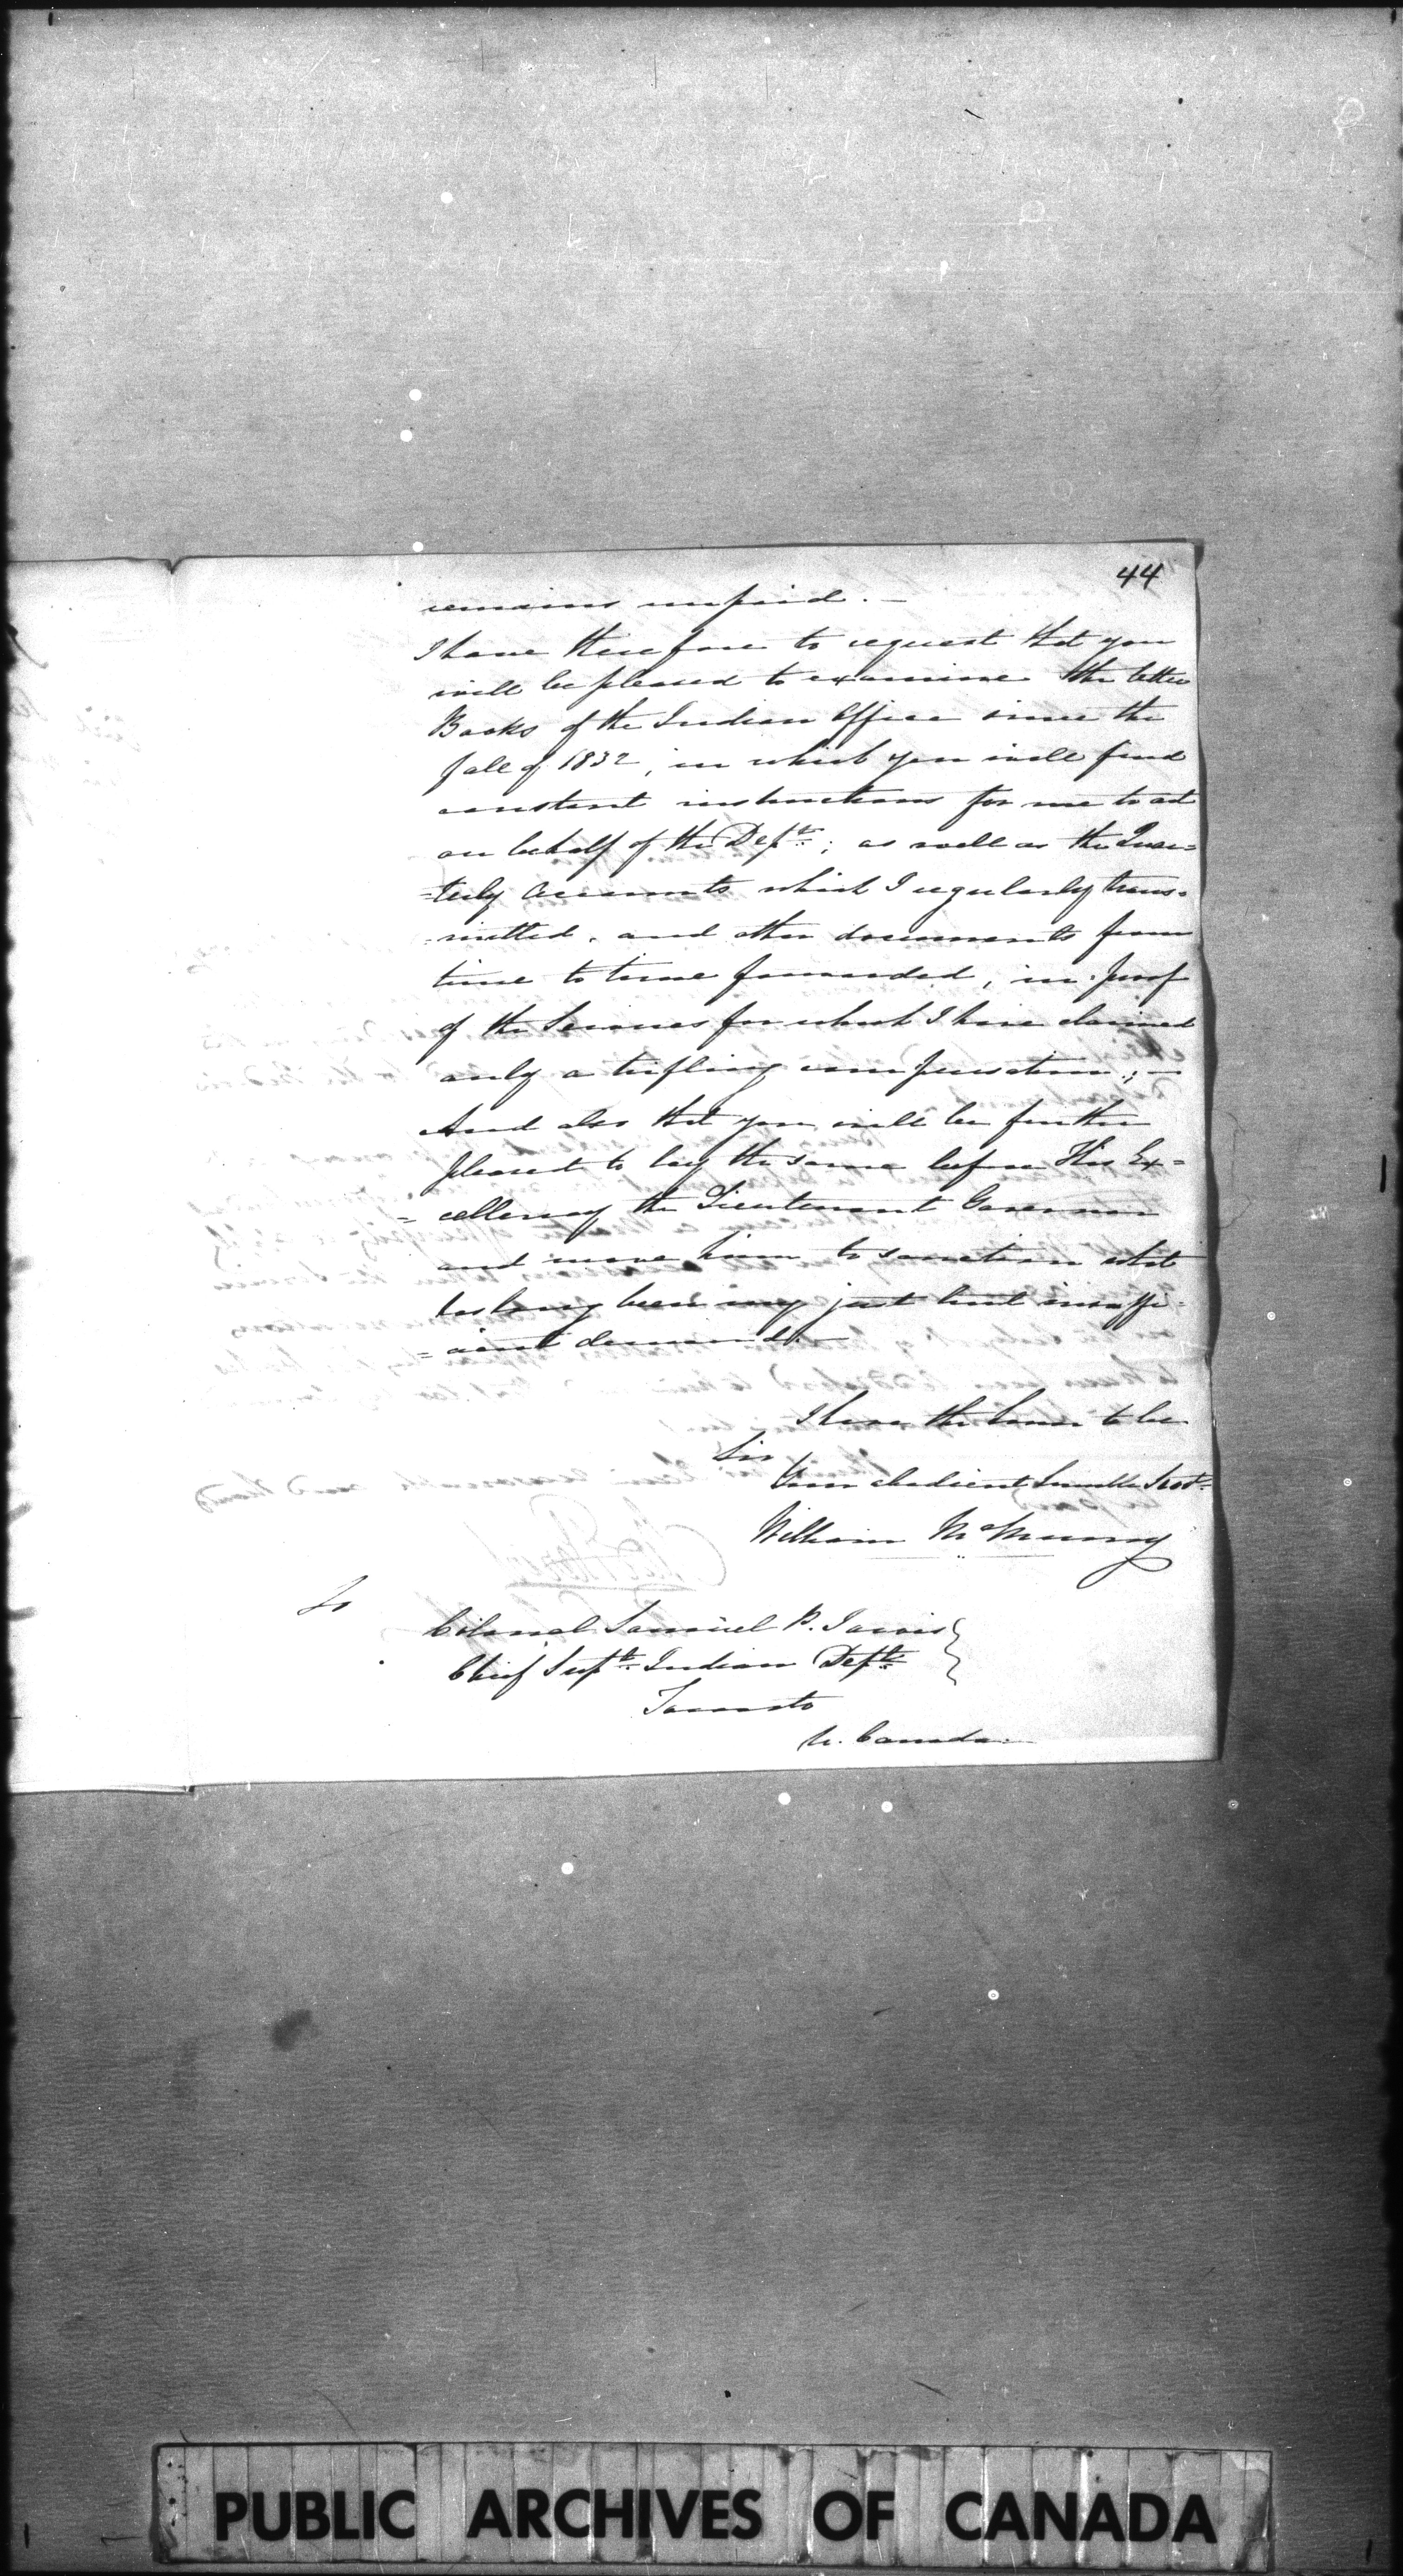 44
remains unpaid. —
I have therefore to request that you
will be pleased to examine the letter
Books of the Indian Office since the
fall of 1832, in which you will find
constant instructions for me to act
on behalf of the Dept.; as well as the Quar=
=terly accounts which I regularly trans=
=mitted, and other documents from
time to time forwarded, in proof
of the Services for which I have claimed
only a trifling compensation; —
And also that you will be further
pleased to lay the same before His Ex=
=cellency the Lieutenant Governor
and move him to sanction what
has long been my just but insuffi=
=cient demand. —
I have the honor to be
Sir
Your obedient humble Servt.
William McMurray
To
Colonel Samuel P. Jarvis
Chief Supt. Indian Dept.
Toronto
U. Canada
PUBLIC ARCHIVES OF CANADA